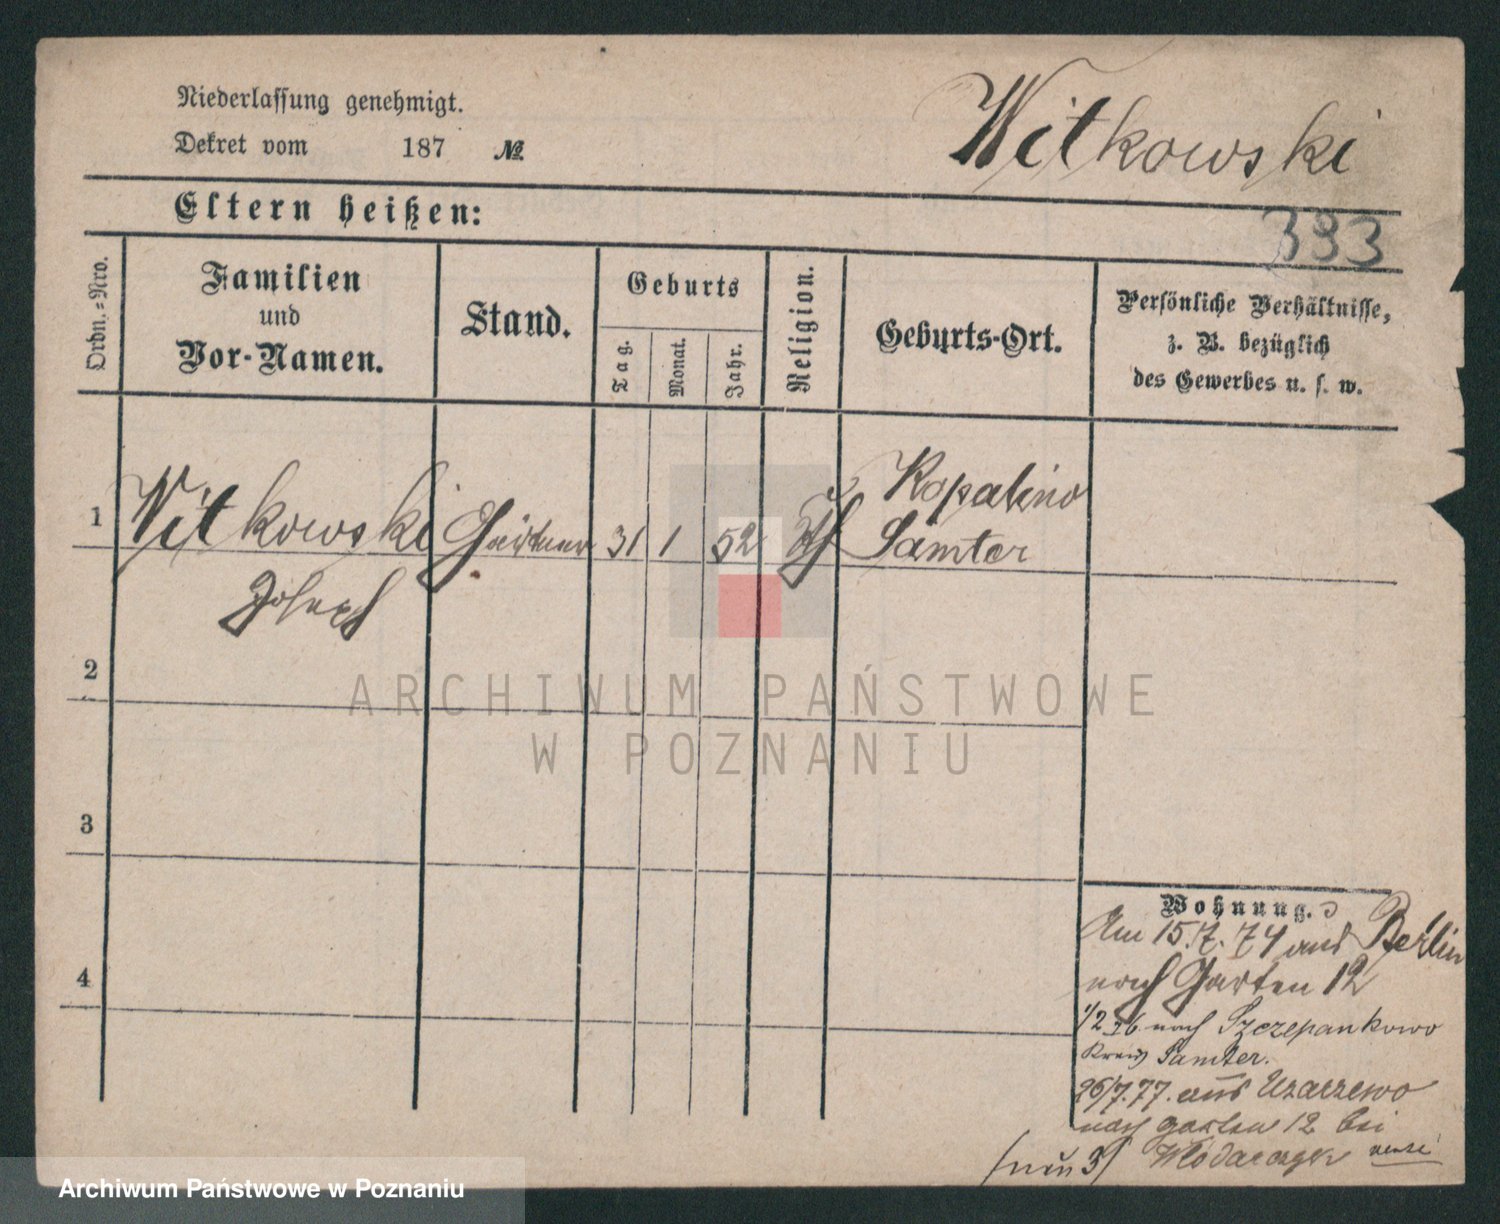 Niederlassung genehmigt.
Dekret vom 187 №
Witkowski
Eltern heißen:
393
Ordn.=Nro.
Familien
und
Vor-Namen.
Stand.
Geburts
Tag.
Monat.
Jahr.
Religion.
Geburts-Ort.
Persönliche Verhältnisse,
z. B. bezüglich
des Gewerbes u. s. w.
1 Witkowski Gärtner 31 1 52 Kth Kopalino
Samter
Joseph
2
ARCHIWUM PAŃSTWOWE
W POZNANIU
3
4
Wohnung.
Am 15.7.74 aus Berlin
nach Garten 12
1/2 76. nach Szczepankowo
Kreis Samter.
26/7.77. aus Uzarzewo
nach Garten 12 bei
Wlodarczyk
Archiwum Państwowe w Poznaniu